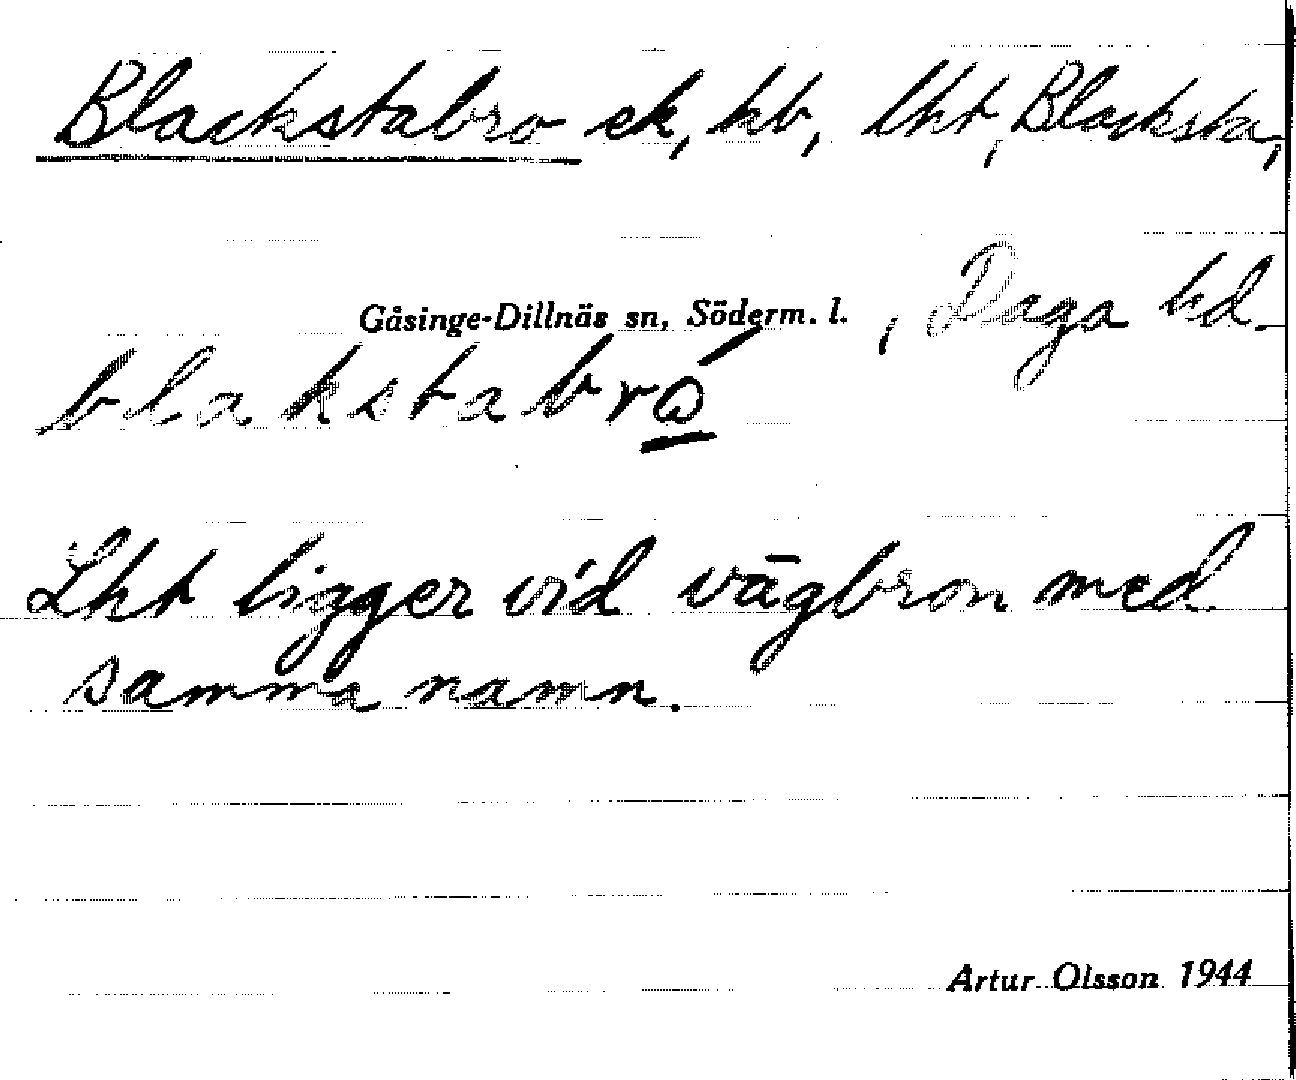 Blackstabro ek, kb, lht, Blacksta,
Gåsinge-Dillnäs sn, Söderm. l. , Daga hd.
blakstabró
Lht ligger vid vägbron med
samma namn.
Artur Olsson 1944